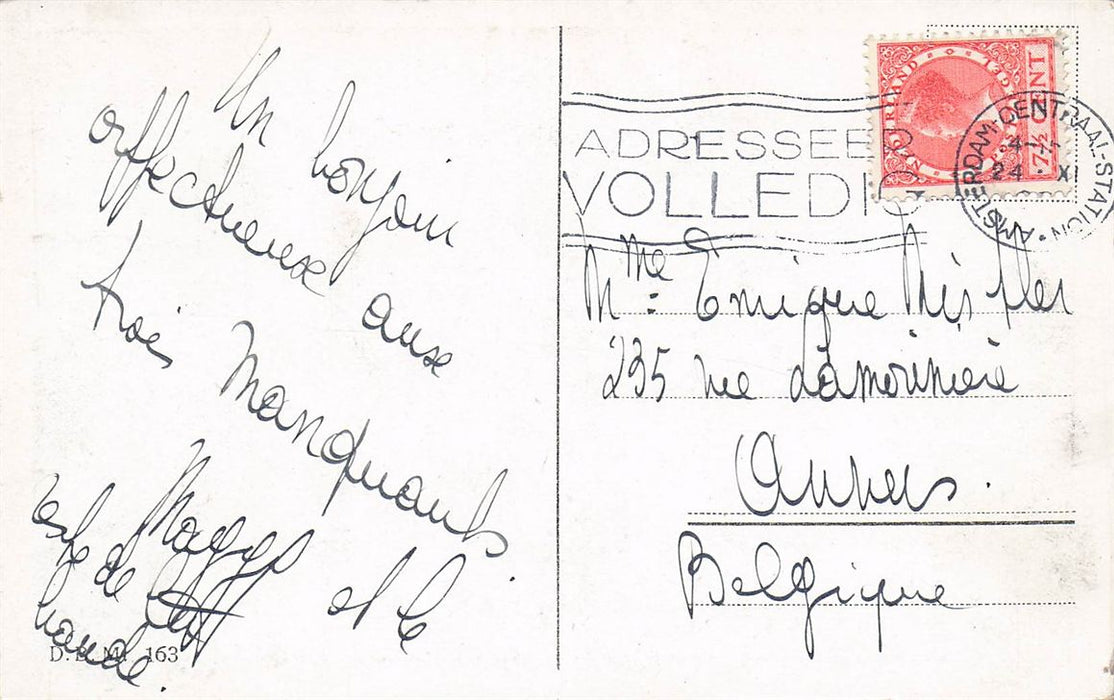 Un bonjour
affectueuse aux
trois manquants.
Maggy et le
reste de
bande.
D. B. M. 163
ADRESSEER
VOLLEDIG
NEDERLAND
7½ CENT
AMSTERDAM-CENTRAAL-STATION
24 · X
Mme: Emique Misller
235 rue Lamorinière
Anvers.
Belgique